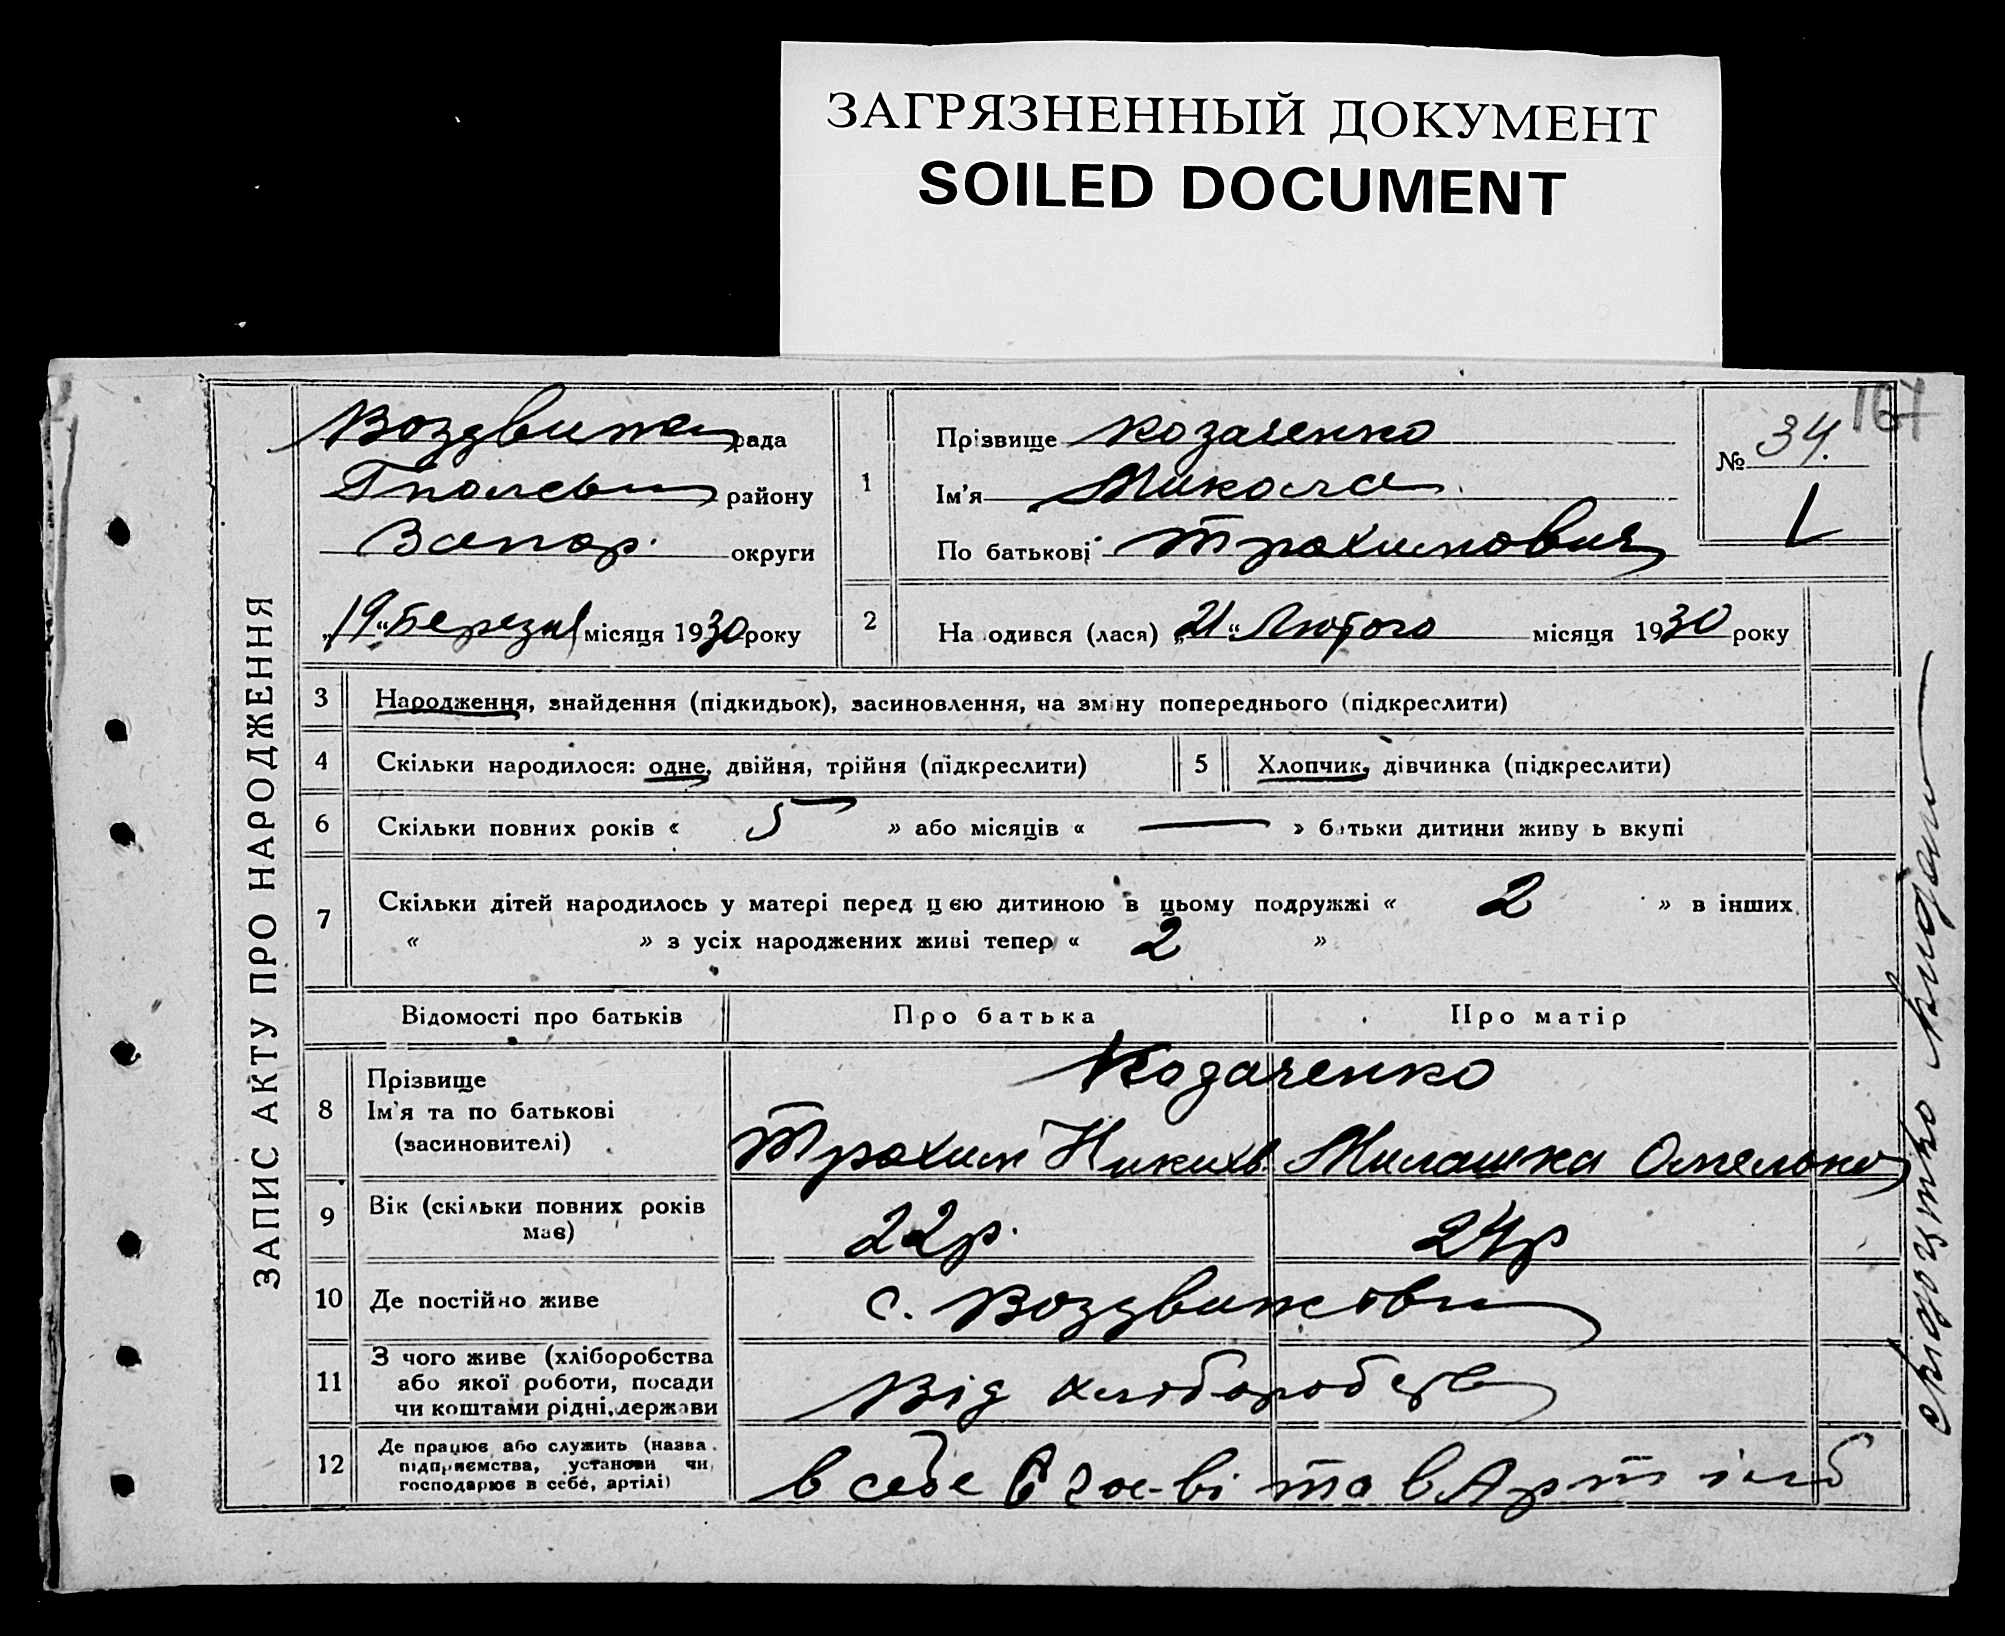 ЗАГРЯЗНЕННЫЙ ДОКУМЕНТ
SOILED DOCUMENT
167
ЗАПИС АКТУ ПРО НАРОДЖЕННЯ
рада
району
Запор. округи
„19“ Березня місяця 1930 року
1
Прізвище Козаченко
Ім'я Микола
По батькові Трохимович
№ 34.
2
На одився (лася) „21“ Лютого місяця 1930 року
3 Народження, знайдення (підкидьок), засиновлення, на зміну попереднього (підкреслити)
4 Скільки народилося: одне, двійня, трійня (підкреслити)
5 Хлопчик, дівчинка (підкреслити)
6 Скільки повних років « 5 » або місяців « — » батьки дитини живу ь вкупі
7 Скільки дітей народилось у матері перед цією дитиною в цьому подружжі « 2 » в інших
« » з усіх народжених живі тепер « 2 »
Відомості про батьків Про батька Про матір
8 Прізвище
Ім'я та по батькові
(засиновителі)
Козаченко
Трохим Никих Милашка Омельков
9 Вік (скільки повних років
має)
22р. 24р
10 Де постійно живе
с. Воздвижовки
11 З чого живе (хліборобства
або якої роботи, посади
чи коштами рідні, держави
Від хліборобства
12 Де працює або служить (назва
підприємства, установи чи
господарює в себе, артілі)
в себе в гос-ві та в Артілі